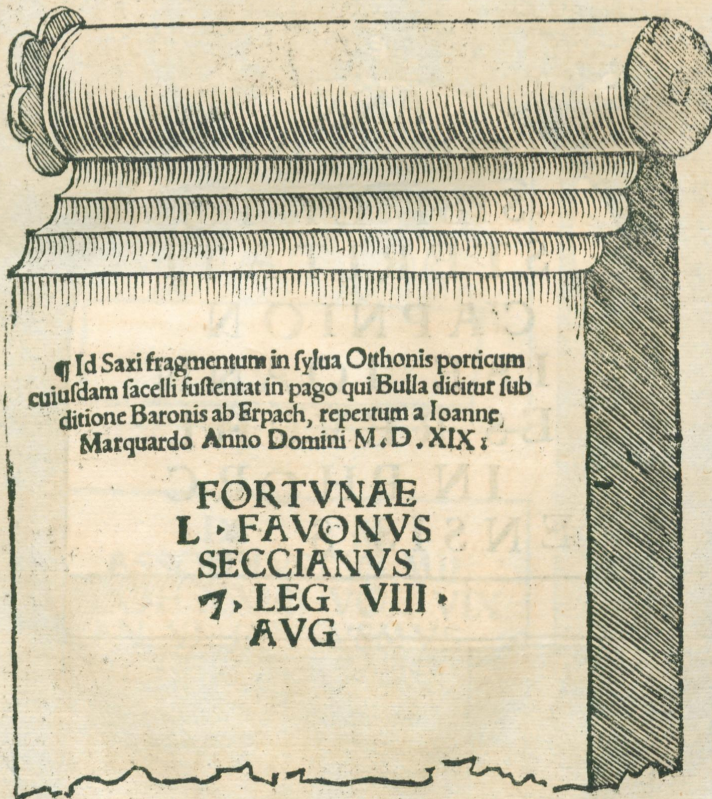 ¶ Id Saxi fragmentum in ſylua Otthonis porticum
cuiuſdam ſacelli ſuſtentat in pago qui Bulla dicitur ſub
ditione Baronis ab Erpach, repertum a Ioanne,
Marquardo Anno Domini M.D.XIX:
FORTVNAE
L · FAVONVS
SECCIANVS
7 · LEG VIII ·
AVG